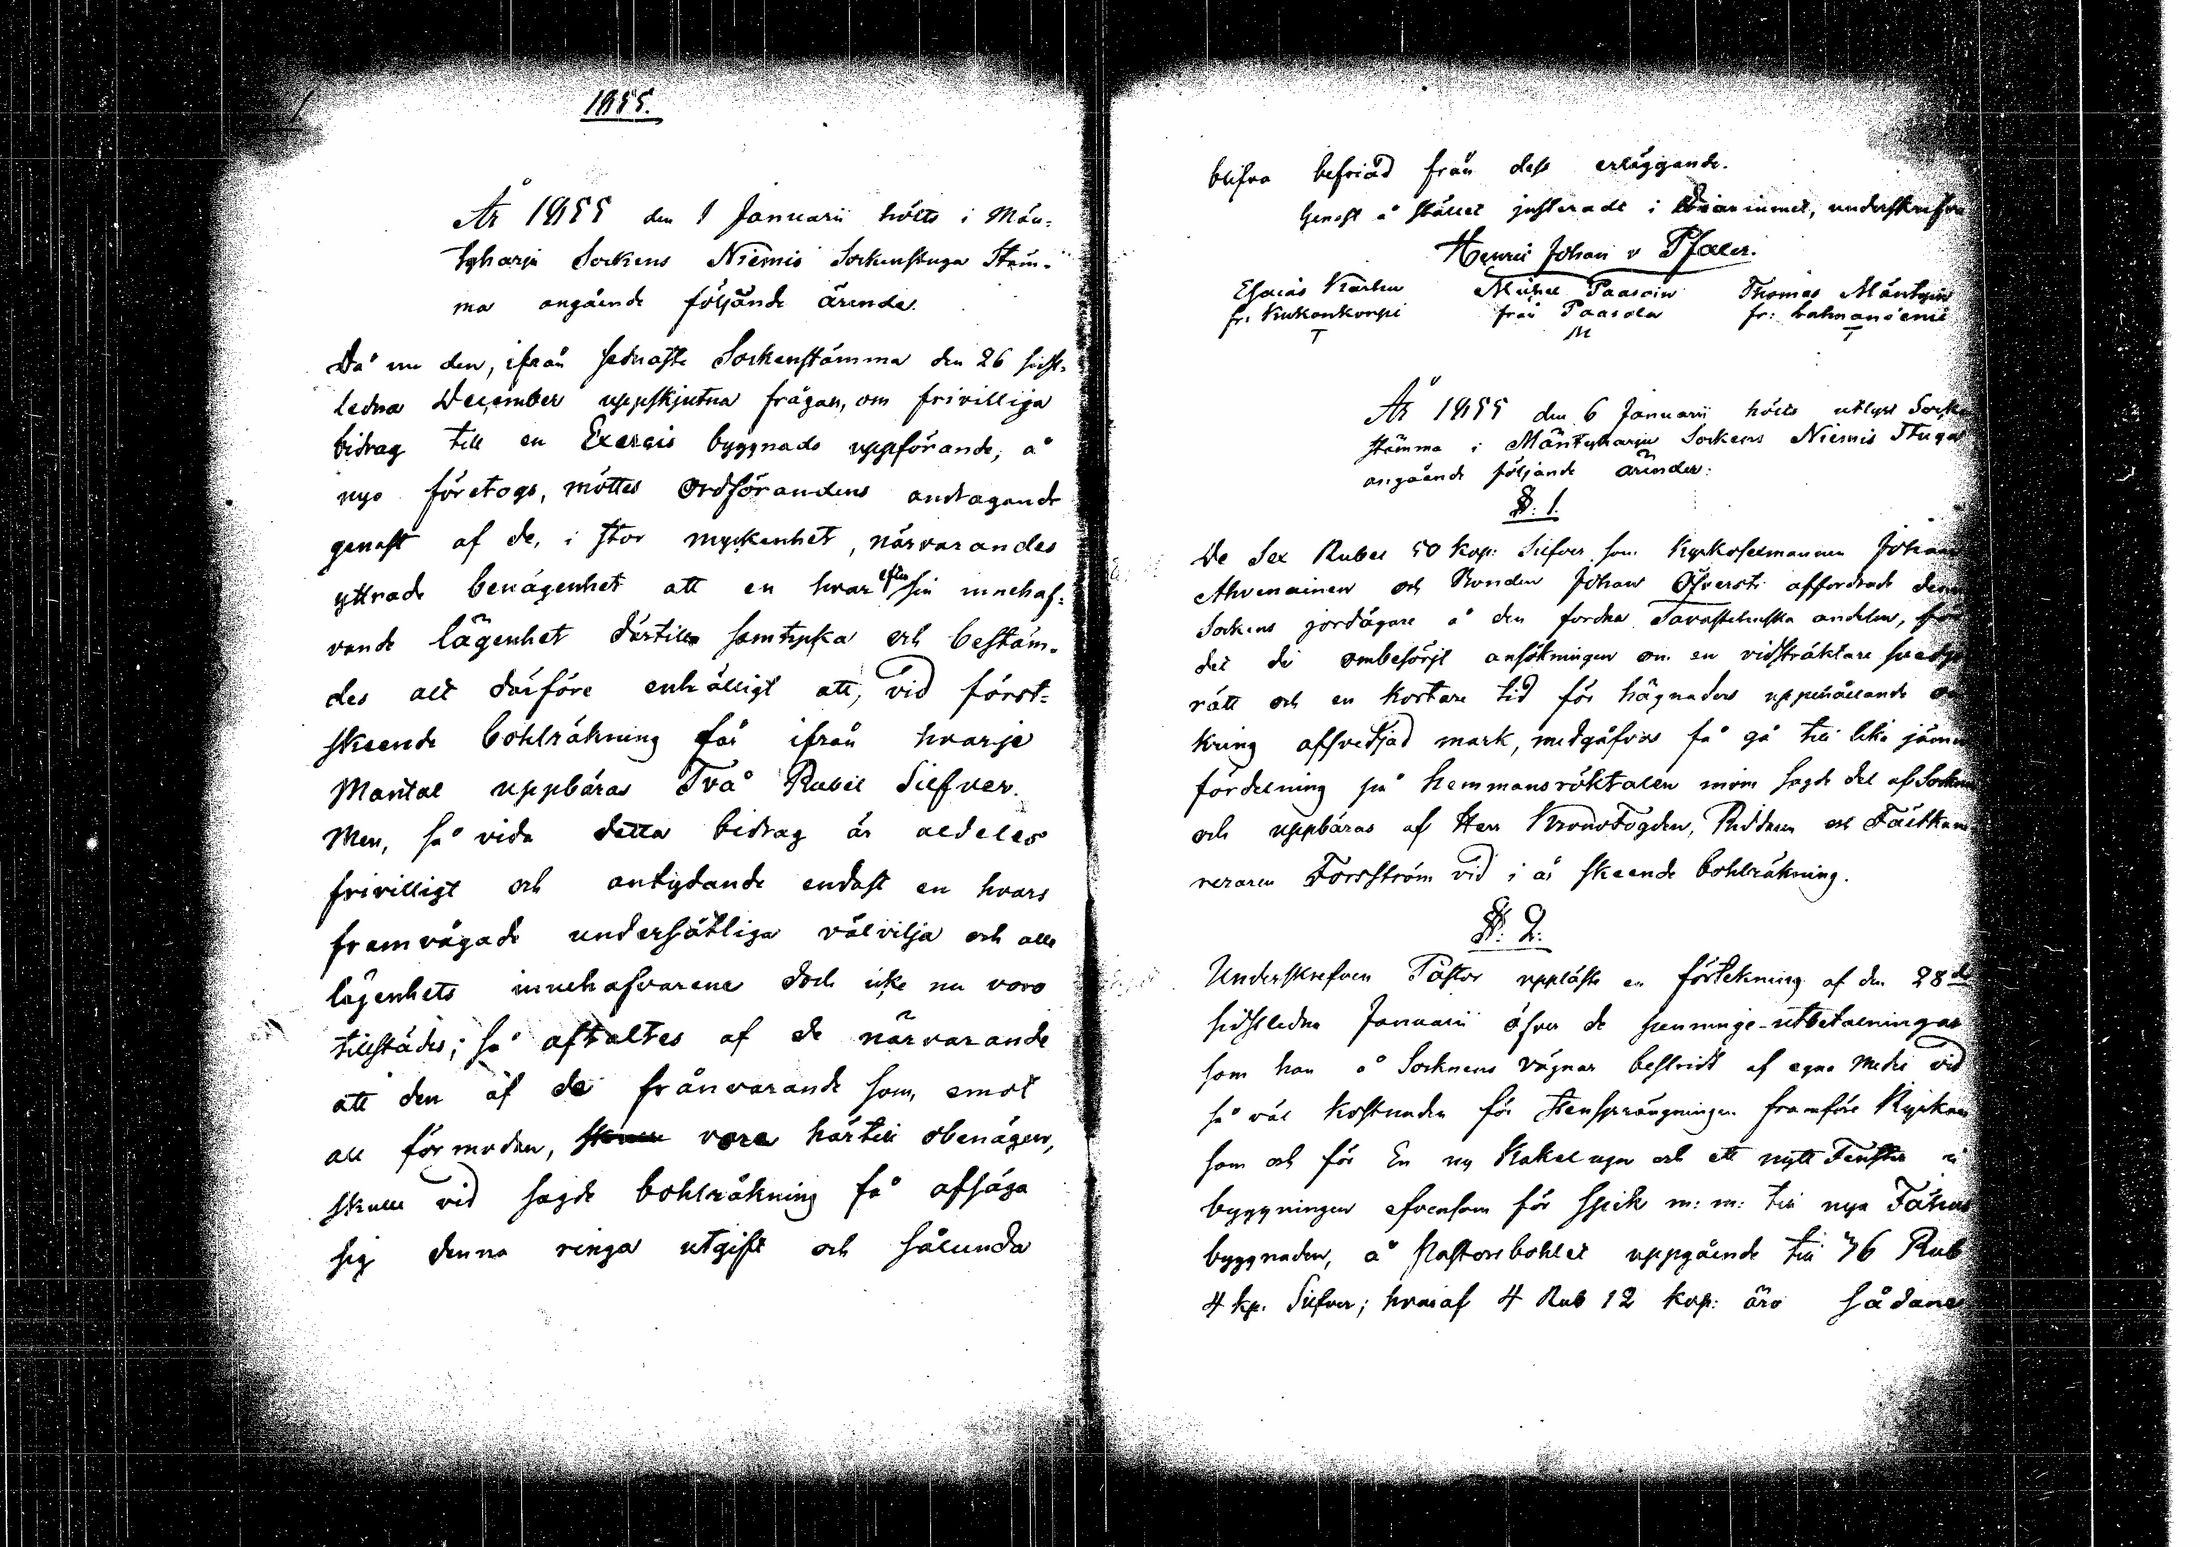 1855.
År 1855 den 1 Januarii hölts i Män-
tyharju Sockens Niemis Sockenstuga Stäm-
ma angående följande ärende.
Då nu den, ifrån sednaste Sockenstämma den 26 sidst-
ledna December uppskjutna frågan, om frivilliga
bidrag till en Exercis byggnads uppförande, å
nyo företogs, möttes Ordförandens andragande
genast af de, i stor myckenhet, närvarandes
yttrade benägenhet att en hvar efter sin innehaf-
vande lägenhet därtill samtycka och bestäm-
des alt därföre enhälligt att, vid först-
skeende bohlräkning får ifrån hvarje
Mantal uppbäras Två Rubel Silfver.
Men, så vida detta bidrag är aldeles
frivilligt och antydande endast en hvars
framvägade undersåtliga välvilja och alla
lägenhets innehafvarene dock icke nu voro
tillstädes; så aftaltes af de närvarande
att den af de frånvarande som, emot
all förmodan, vore härtill obenägen,
skulle vid sagde bohlräkning få afsäga
sig denna ringa utgift och sålunda
blifva befriad från dess erläggande.
Genast å stället justerade i underskrifva
Henric Johan v Pfaler.
Esaias Kärhu Michel Paasoin Thomas Mäntynin
fr: Kukonkorpi från Paasola fr: Lahnaniemi
T M T
År 1855 den 6 Januarii hölts utlyst Socken
stämma i Mäntyharju Sockens Niemis Stuga
angående följande ärender:
§. 1.
De Sex Rubel 50 kop: Silfver som Kyrkosexmannen Johan
Ahvenainen och Bonden Johan Öfversti affordrade denna
Sockens jordägare å den fordna Tavastehuska andelen, för
det de ombesörjt ansökningen om en vidsträktare svedje
rätt och en kortare tid för hägnaders uppehållande om
kring affvedjad mark, medgåfvos få gå till lika jämn
fördelning på hemmansröktalen inom sagde del af Socknen
och uppbäras af Herr KronoFogden, Riddaren och Fältkam
reraren Forsström vid i år skeende bohlräkning.
§. 2.
Underskrefven Pastor uppläste en förtekning af den 28de
sidstledne Januarii öfver de penninge-utbetalningar
som han å Socknens vägnar bestridt af egna medel vid
så väl kostnaden för stensprängningen framföre Kyrkan
som och för En ny Kakelugn och ett nytt Fenster i
byggningen äfvensom för spik m: m: till nya Fähus
byggnaden, å Pastorsbohlet uppgående till 76 Rub
4 kp. Silfver; hvaraf 4 Rub 12 kop: äro sådane